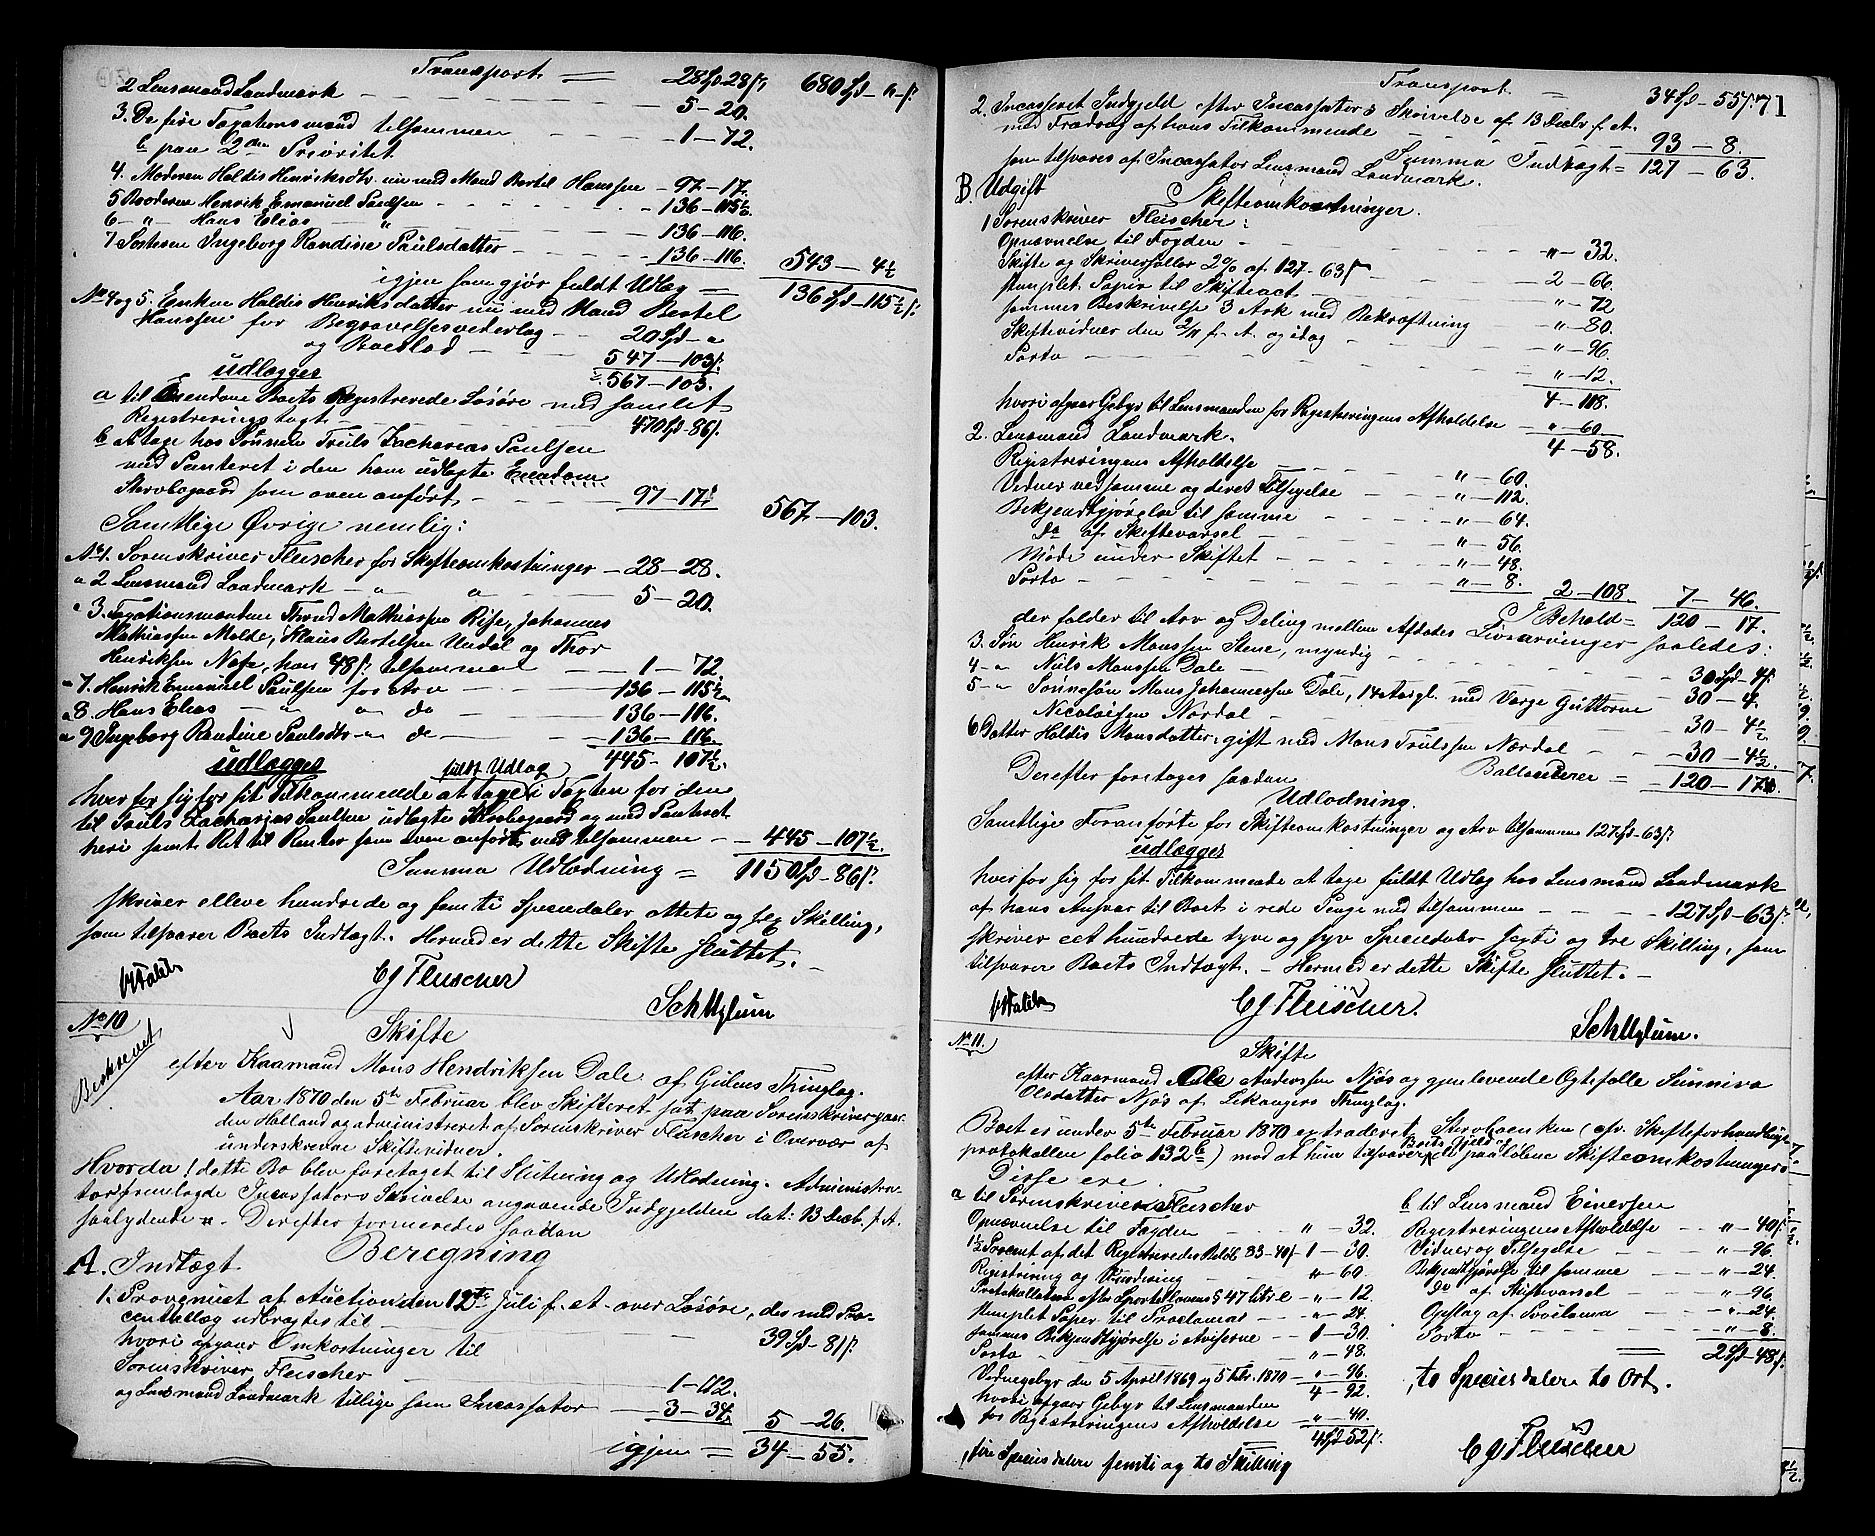 Transport = 28 Spd 28 ß, 680 Spd - " - ß.
2 Lensmand Landmark - - - - 5 - 20.
3. De fire Taxationsmænd tilsammen - - 1 - 72.
b paa 2den Prioritet
4. Moderen Heldis Henriksdtr. nu med Mand Bertel Hanssen - 97 - 17.
5 Broderen Henrik Emanuel Paulsen - - - - 136 - 115½
6 - " - Hans Elias - - " - - - - 136 - 116.
7 Søsteren Ingeborg Randine Paulsdatter - - - - 136 - 116. 543 - 4½
igjen som gjør fuldt Udlæg = 136 Spd - 115½ ß.
No 4 og 5. Enken Heldis Henriksdatter nu med Mand Bertel
Hanssen for Begravelsesvederlag - - 20 Spd - "
og Boeslod - - - - 547 - 103 ß.
udlægges 567 - 103.
a til Eiendom Boets Registrerede Løsøre med samlet
Registreringstaxt - - - - 470 Spd - 86 ß.
b At tage hos Sønnen Truls Zacharias Paulsen
med Panteret i den ham udlagte Eiendom
Stervbogaard som oven anført - - - 97 - 17 567 - 103.
Samtlige Øvrige nemlig:
No 1. Sorenskriver Fleischer for Skifteomkostninger - 28 - 28.
" 2 Lensmand Landmark - " - " - - - 5 - 20.
" 3. Taxationsmændene Thrond Mathiassen Rise, Johannes
Mathiassen Melde, Klaus Bertelsen Undal og Thor
Henriksen Nese, hver 48 ß. tilsammen - - 1 - 72.
" 7. Henrik Emanuel Paulsen for Arv - - - 136 - 115½
" 8. Hans Elias - " - " do - - - 136 - 116.
" 9 Ingeborg Randine Paulsdtr - " - do - - 136 - 116.
udlægges 445 - 107½.
fuldt Udlæg
hver for sig for sit Tilkommende at tage i Taxten for den
til Truls Zacharias Paulsen udlagte Stervbogaard og med Panteret
heri samt Ret til Renter som oven anført med tilsammen - - 445 - 107½
Summa Udlodning = 1150 Spd - 86 ß.
skriver elleve hundrede og femti Speciedaler otteti og sex Skilling,
som tilsvarer Boets Indtægt. Hermed er dette Skifte sluttet. -
CJ Fleischer
No 10
Beskrevet
Skifte
efter Kaarmand Mons Hendriksen Dale af Gulens Thinglag.
Aar 1870 den 5te Februar blev Skifteret sat paa Sorenskrivergaar-
den Holland og administreret af Sorenskriver Fleischer i Overvær af
underskrevne Skiftevidner.
Hvorda! dette Bo blev foretaget til Slutning og Udlodning. Administra-
tor fremlagde Incassators Skrivelse angaaende Indgjelden dat: 13 Decb. f. A.
saalydende ". Derefter formeredes saadan
Beregning
A. Indtægt
1. Provenuet af Auction den 12te Juli f. A. over Løsøre, der med Pro-
centtillæg udbragtes til - - - - 39 Spd - 81 ß.
hvori afgaar Omkostninger til
Sorenskriver Fleischer - - 1 - 112.
og Lensmand Landmark tillige som Incassator - - 3 - 34. 5 - 26.
igjen = 34 - 55.
Transport = 34 Spd - 55 ß. 71
2. Incasseret Indgjeld efter Incassators Skrivelse af 13 Decbr. f. A.
med Fradrag af hans Tilkommende - - - - 93 - 8.
Summa Indtægt = 127 - 63.
som tilsvares af Incassator Lensmand Landmark.
B. Udgift
Skifteomkostninger.
1 Sorenskriver Fleischer:
Opnævnelse til Fogden - - - - " - 32.
Skifte og Skriversallær 2% af 127 - 63 ß - - - 2 - 66.
stemplet Papir til Skifteact - - - - " - 72
sammes Beskrivelse 3 Ark med Bekræftning - - " - 80.
Skiftevidner den 2/11 f. A. og idag - - - " - 96.
Porto - - - - " - 12.
4 - 118.
hvori afgaar Gebyr til Lensmanden for Registreringens Afholdelse - " - 60
4 - 58.
2. Lensmand Landmark.
Registreringens Afholdelse - - - " - 60.
Vidner ved samme og deres Tilsigelse - - " - 112.
Bekjendtgjørelse til samme - - - " - 64.
do af Skiftevarsel - - - " - 56.
Møde under Skiftet - - - " - 48.
Porto - - - - " - 8. 2 - 108. 7 - 46.
I Behold = 120 - 17.
der falder til Arv og Deling mellem Afdødes Livsarvinger saaledes:
3. Søn Henrik Monssen Stene, myndig - - - 30 Spd - 4 ß.
4 - " Niels Monssen Dale - - - - 30 - 4.
5 - " Sønnesøn Mons Johannessen Dale, 14 Aar gl. med Værge Guttorm
Nicolaisen Nordal - - - - 30 - 4½
6 Datter Heldis Monsdatter, gift med Mons Trulssen Nordal - - 30 - 4½.
Ballancerer = 120 - 17.
Derefter foretages saadan
Udlodning.
Samtlige Foranførte for Skifteomkostninger og Arv tilsammen 127 Spd - 63 ß.
udlægges
hver for sig for sit Tilkommende at tage fuldt Udlæg hos Lensmand Landmark
af hans Ansvar til Boet i rede Penge med tilsammen - - - 127 Spd - 63 ß.
skriver eet hundrede tyve og syv Speciedaler sexti og tre Skilling, som
tilsvarer Boets Indtægt. - Hermed er dette Skifte sluttet. -
CJ Fleischer.
No 11.
Skifte
efter Kaarmand Ole Anderssen Njøs og gjenlevende Ægtefælle Sunniva
Olsdatter Njøs af Lekangers Thinglag.
Boet er under 5te Februar 1870 extraderet Stervboenken (cfr. Skifteforhandlings-
protokollen folio 132 b) mod at hun tilsvarer Boets Gjeld og paaløbne Skifteomkostninger.
Disse ere
a til Sorenskriver Fleischer
Opnævnelse til Fogden - - " - 32.
1½ Procent af det Registreredes Beløb 33 - 40 ß - 1 - 30.
Registrering og Vurdering - - " - 60.
Protokollation efter Sportellovens § 47 litr. c - " - 12.
stemplet Papir til Proclamat - - " - 24.
sammes Bekjendtgjørelse i Aviserne - - 1 - 30.
Porto - - - " - 48.
Vidnegebyr den 5 April 1869 og 5 Febr. 1870 - " - 96.
4 - 92.
hvori afgaar Gebyr til Lensmanden
for Registreringens Afholdelse - " - 40.
4 Spd 52 ß.
, fire Speciedaler femti og to Skilling
b til Lensmand Einersen
Registreringens Afholdelse - - " - 40 ß.
Vidner og Tilsigelse - - " - 96.
Bekjendtgjørelse til samme - - " - 24.
do af Skiftevarsel - - " - 96.
Opslag af Proclama - - " - 24
Porto - - " - 8.
2 Spd - 48 ß.
, to Speciedaler to Ort.
CJ Fleischer